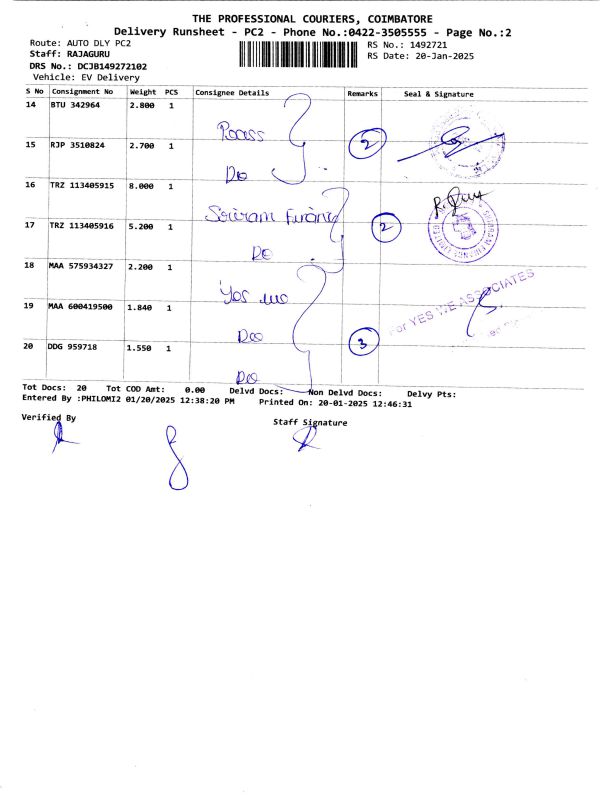 THE PROFESSIONAL COURIERS, COIMBATORE
Delivery Runsheet - PC2 - Phone No.:0422-3505555 - Page No.:2
Route: AUTO DLY PC2 RS No.: 1492721
Staff: RAJAGURU RS Date: 20-Jan-2025
DRS No.: DCJB149272102
Vehicle: EV Delivery
S No Consignment No Weight PCS Consignee Details Remarks Seal & Signature
14 BTU 342964 2.800 1
2
15 RJP 3510824 2.700 1
Do
16 TRZ 113405915 8.000 1
Sriram Finance
17 TRZ 113405916 5.200 1 2
Do
18 MAA 575934327 2.200 1
For YES WE ASSOCIATES
19 MAA 600419500 1.840 1
Do 3
20 DDG 959718 1.550 1
Do
Tot Docs: 20 Tot COD Amt: 0.00 Delvd Docs: Non Delvd Docs: Delvy Pts:
Entered By :PHILOMI2 01/20/2025 12:38:20 PM Printed On: 20-01-2025 12:46:31
Verified By Staff Signature